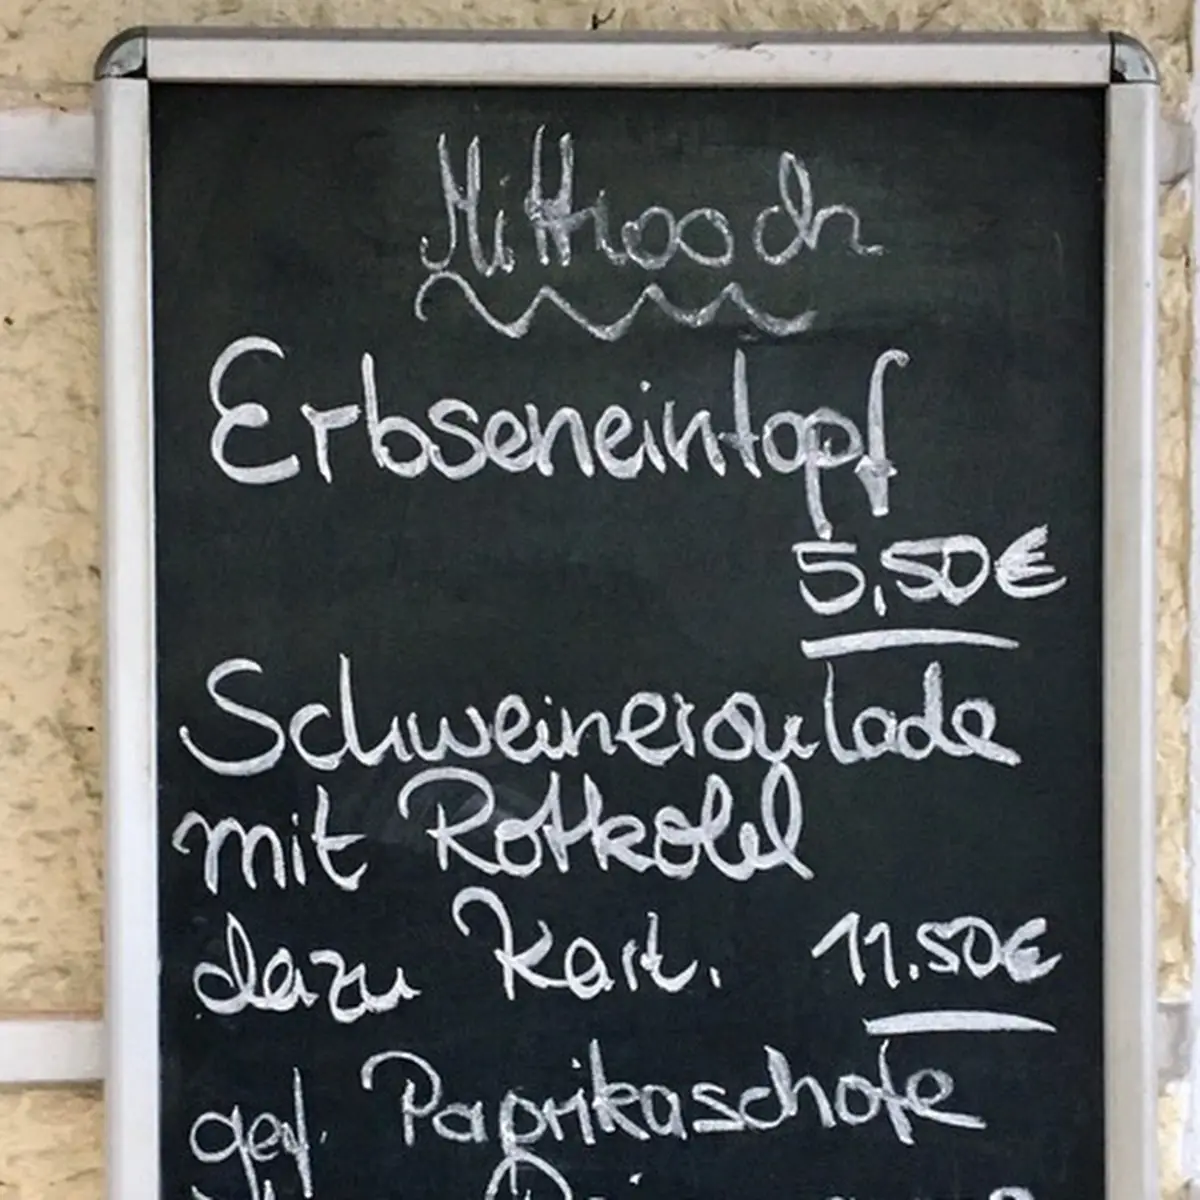 Mittwoch
Erbseneintopf
5,50€
Schweineroulade
mit Rotkohl
dazu Kart. 11.50€
gef. Paprikaschote